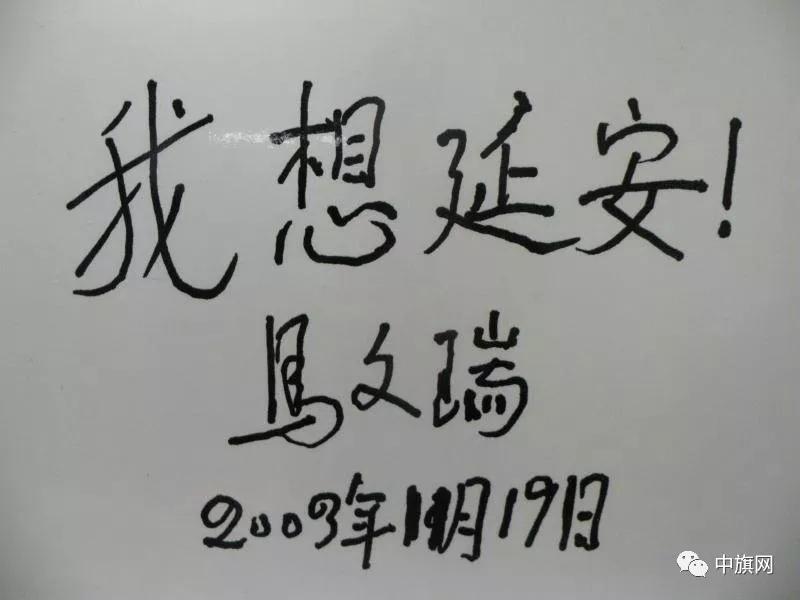 我想延安!
馬文瑞
2003年11月19日
中旗网